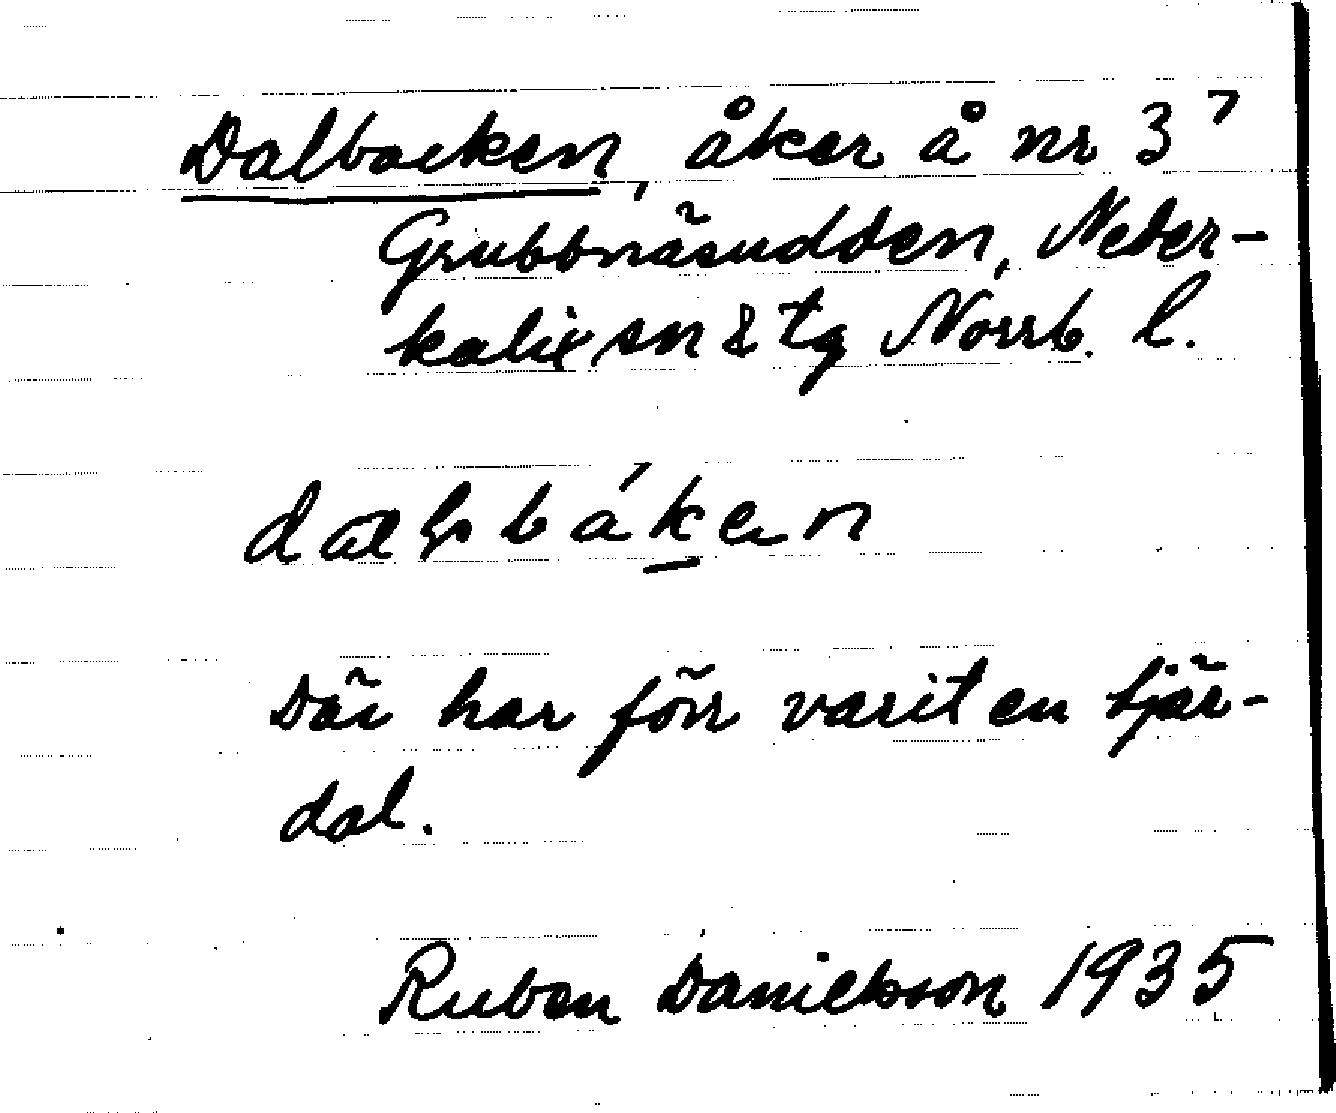 Dalbacken, åker å nr 3⁷
Grubbnäsudden, Neder-
kalix sn & tg Norrb. l.
Där har förr varit en tjär-
dal.
Ruben Danielsson 1935